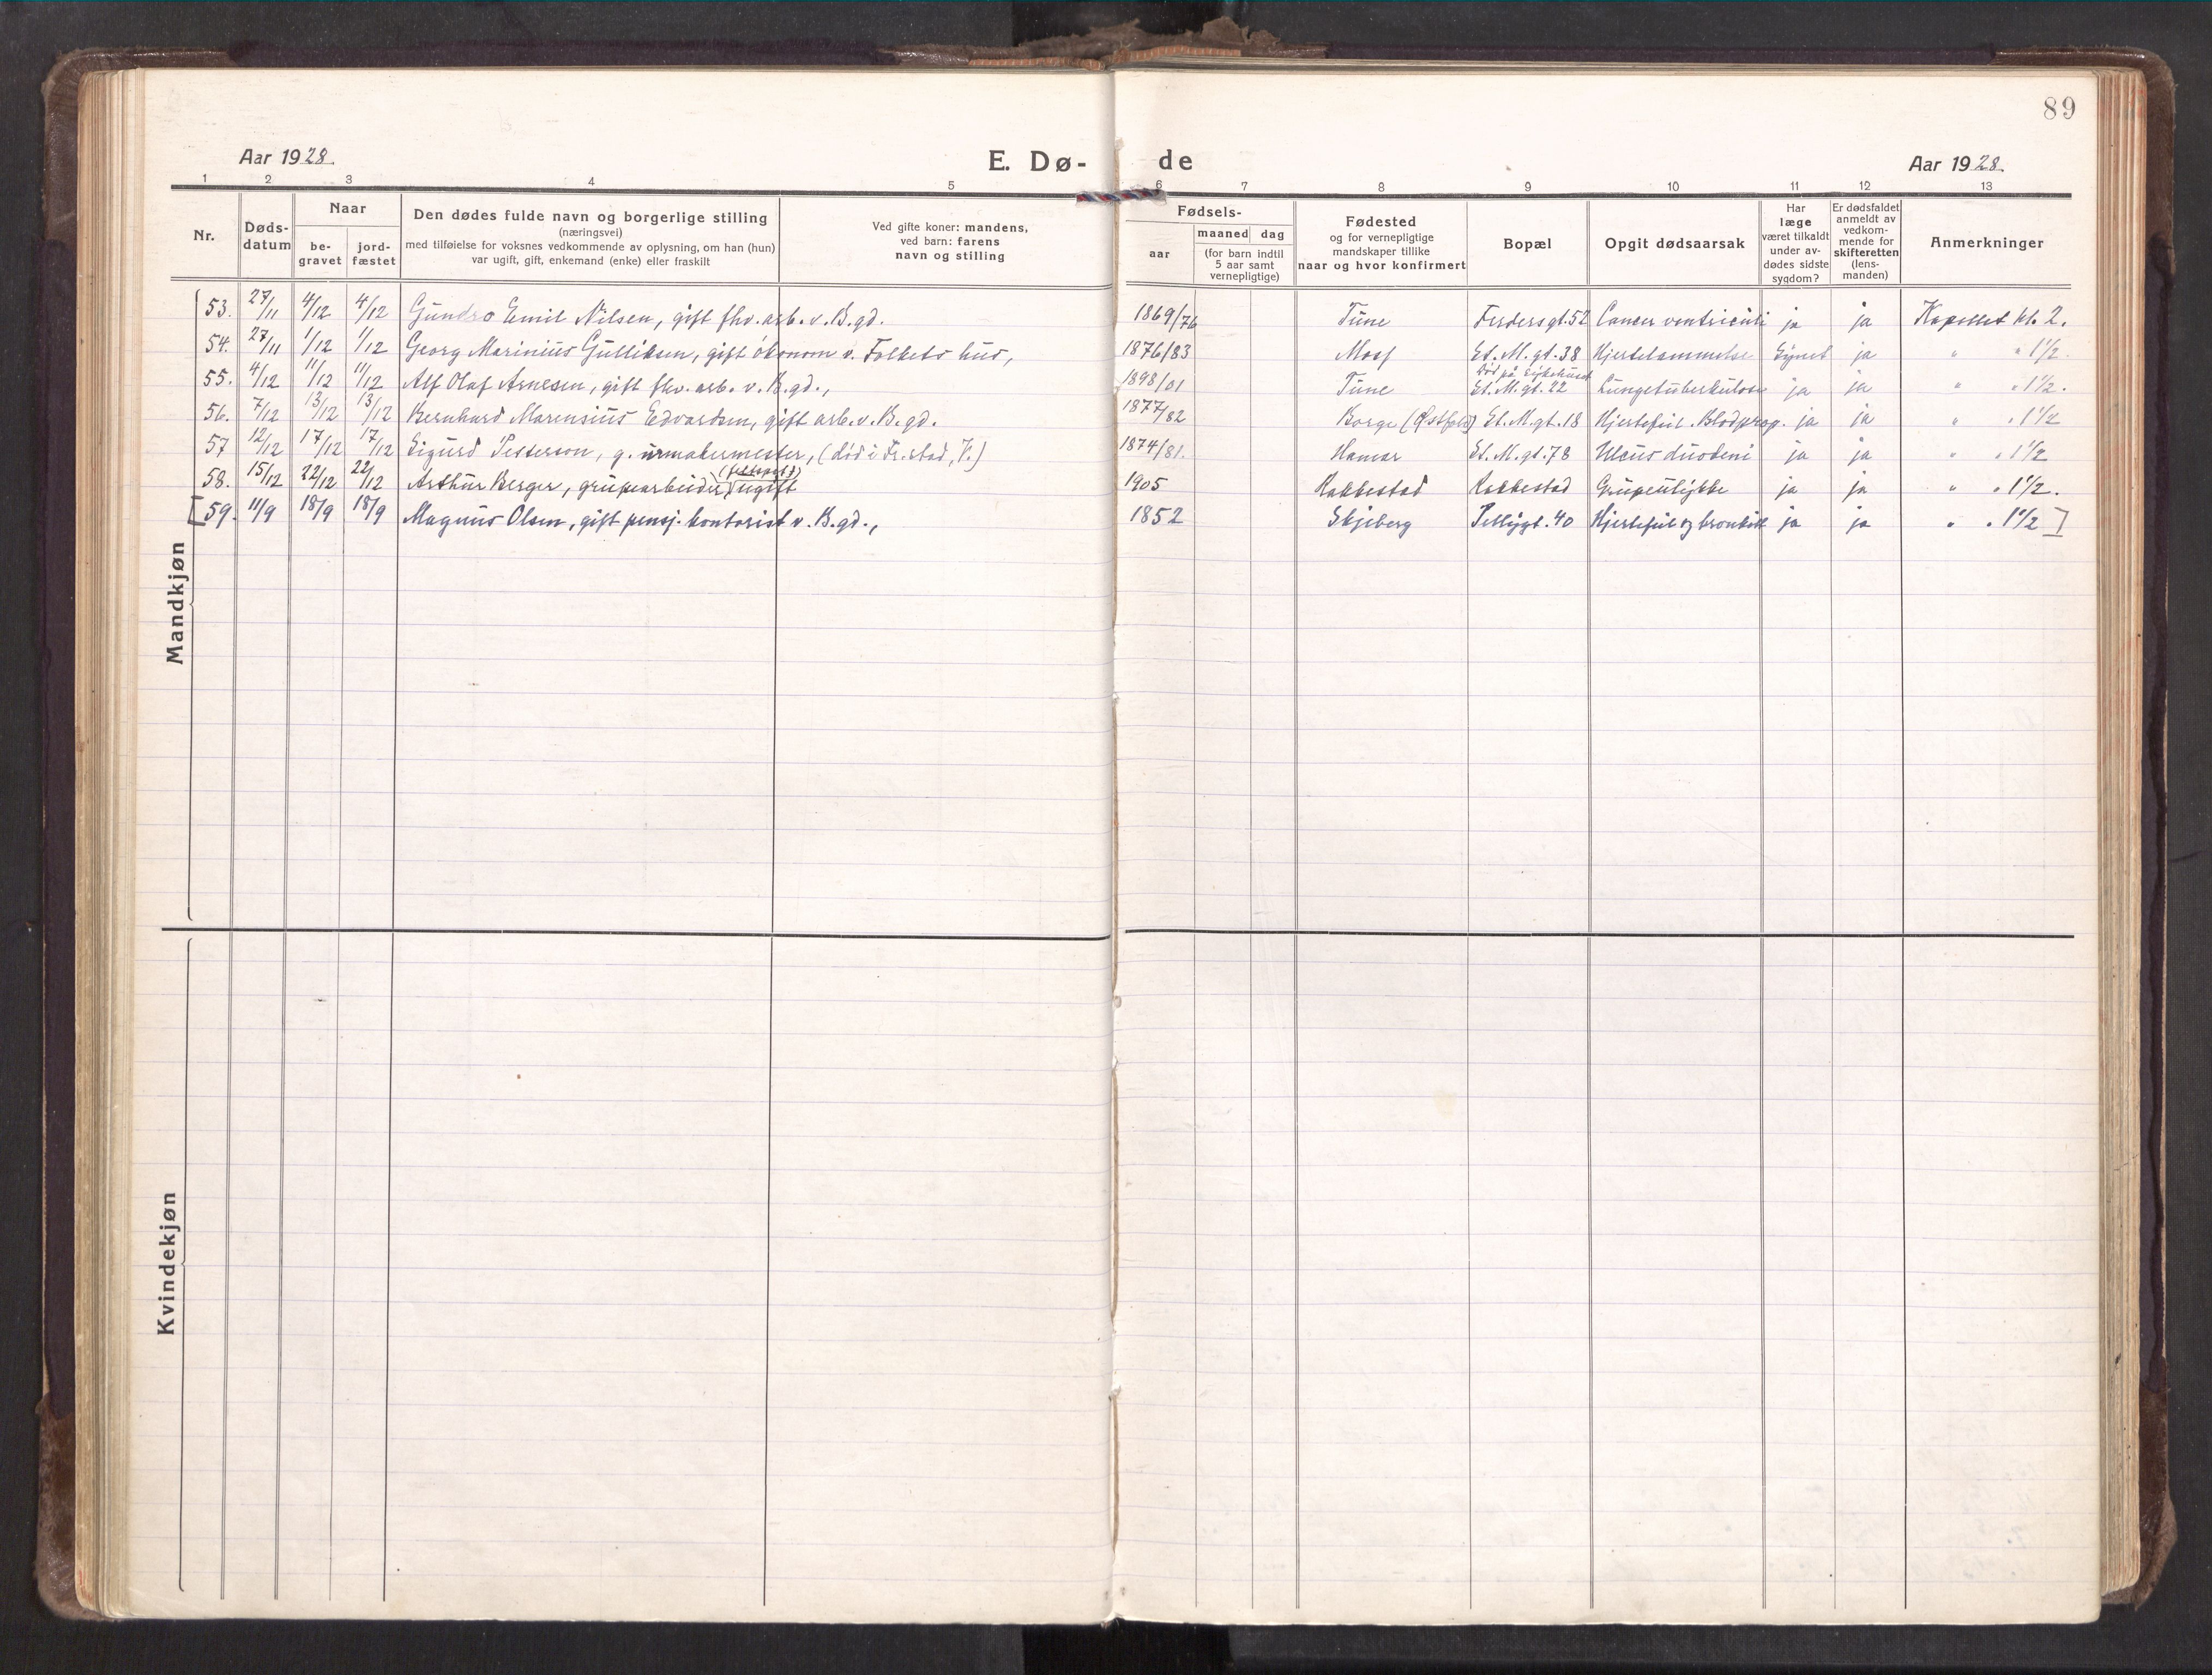 89
Aar 1928. E. Dø- de Aar 1928.
1 2 3 4 5 6 7 8 9 10 11 12 13
Nr.
Døds-
datum
Naar
be-
gravet
jord-
fæstet
Den dødes fulde navn og borgerlige stilling
(næringsvei)
med tilføielse for voksnes vedkommende av oplysning, om han (hun)
var ugift, gift, enkemand (enke) eller fraskilt
Ved gifte koner: mandens,
ved barn: farens
navn og stilling
Fødsels-
aar
maaned dag
(for barn indtil
5 aar samt
vernepligtige)
Fødested
og for vernepligtige
mandskaper tillike
naar og hvor konfirmert
Bopæl
Opgit dødsaarsak
Har
læge
været tilkaldt
under av-
dødes sidste
sygdom?
Er dødsfaldet
anmeldt av
vedkom-
mende for
skifteretten
(lens-
manden)
Anmerkninger
Mandkjøn
53. 27/11 4/12 4/12 Gundro Emil Nilsen, gift fhv. arb. v. B.gd. 1869/76 Tune Ferdersgt. 52 Cancer ventriculi ja ja Kapellet kl. 2.
54. 27/11 1/12 1/12 Georg Marinius Gulliksen, gift økonom v. Folkets hus, 1876/83 Moss St. M. gt. 38 Hjertelammelse Synet ja " " 1 1/2.
55. 4/12 11/12 11/12 Alf Olaf Arnesen, gift fhv. arb. v. B.gd., 1898/01 Tune Død på Sykehuset St. M. gt. 22 Lungetuberkulose ja ja " " 1 1/2.
56. 7/12 13/12 13/12 Bernhard Marensius Edvardsen, gift arb. v. B.gd. 1877/82 Borge (Østfold) St. M. gt. 18 Hjertefeil. Blodprop. ja ja " " 1 1/2
57 12/12 17/12 17/12 Sigurd Petterson, g. urmakermester, (død i Fr.stad, V.) 1874/81. Hamar St. M. gt. 78 Ulcus duodeni ja ja " " 1 1/2
58. 15/12 22/12 22/12 Arthur Berger, grubearbeider, ugift 1905 Rakkestad Rakkestad Grubeulykke ja ja " " 1 1/2.
[59. 11/9 18/9 18/9 Magnus Olsen, gift pensj. kontorist v. B.gd., 1852 Skjeberg Pellygt. 40 Hjertefeil og bronkitt ja ja " " 1 1/2]
Kvindekjøn